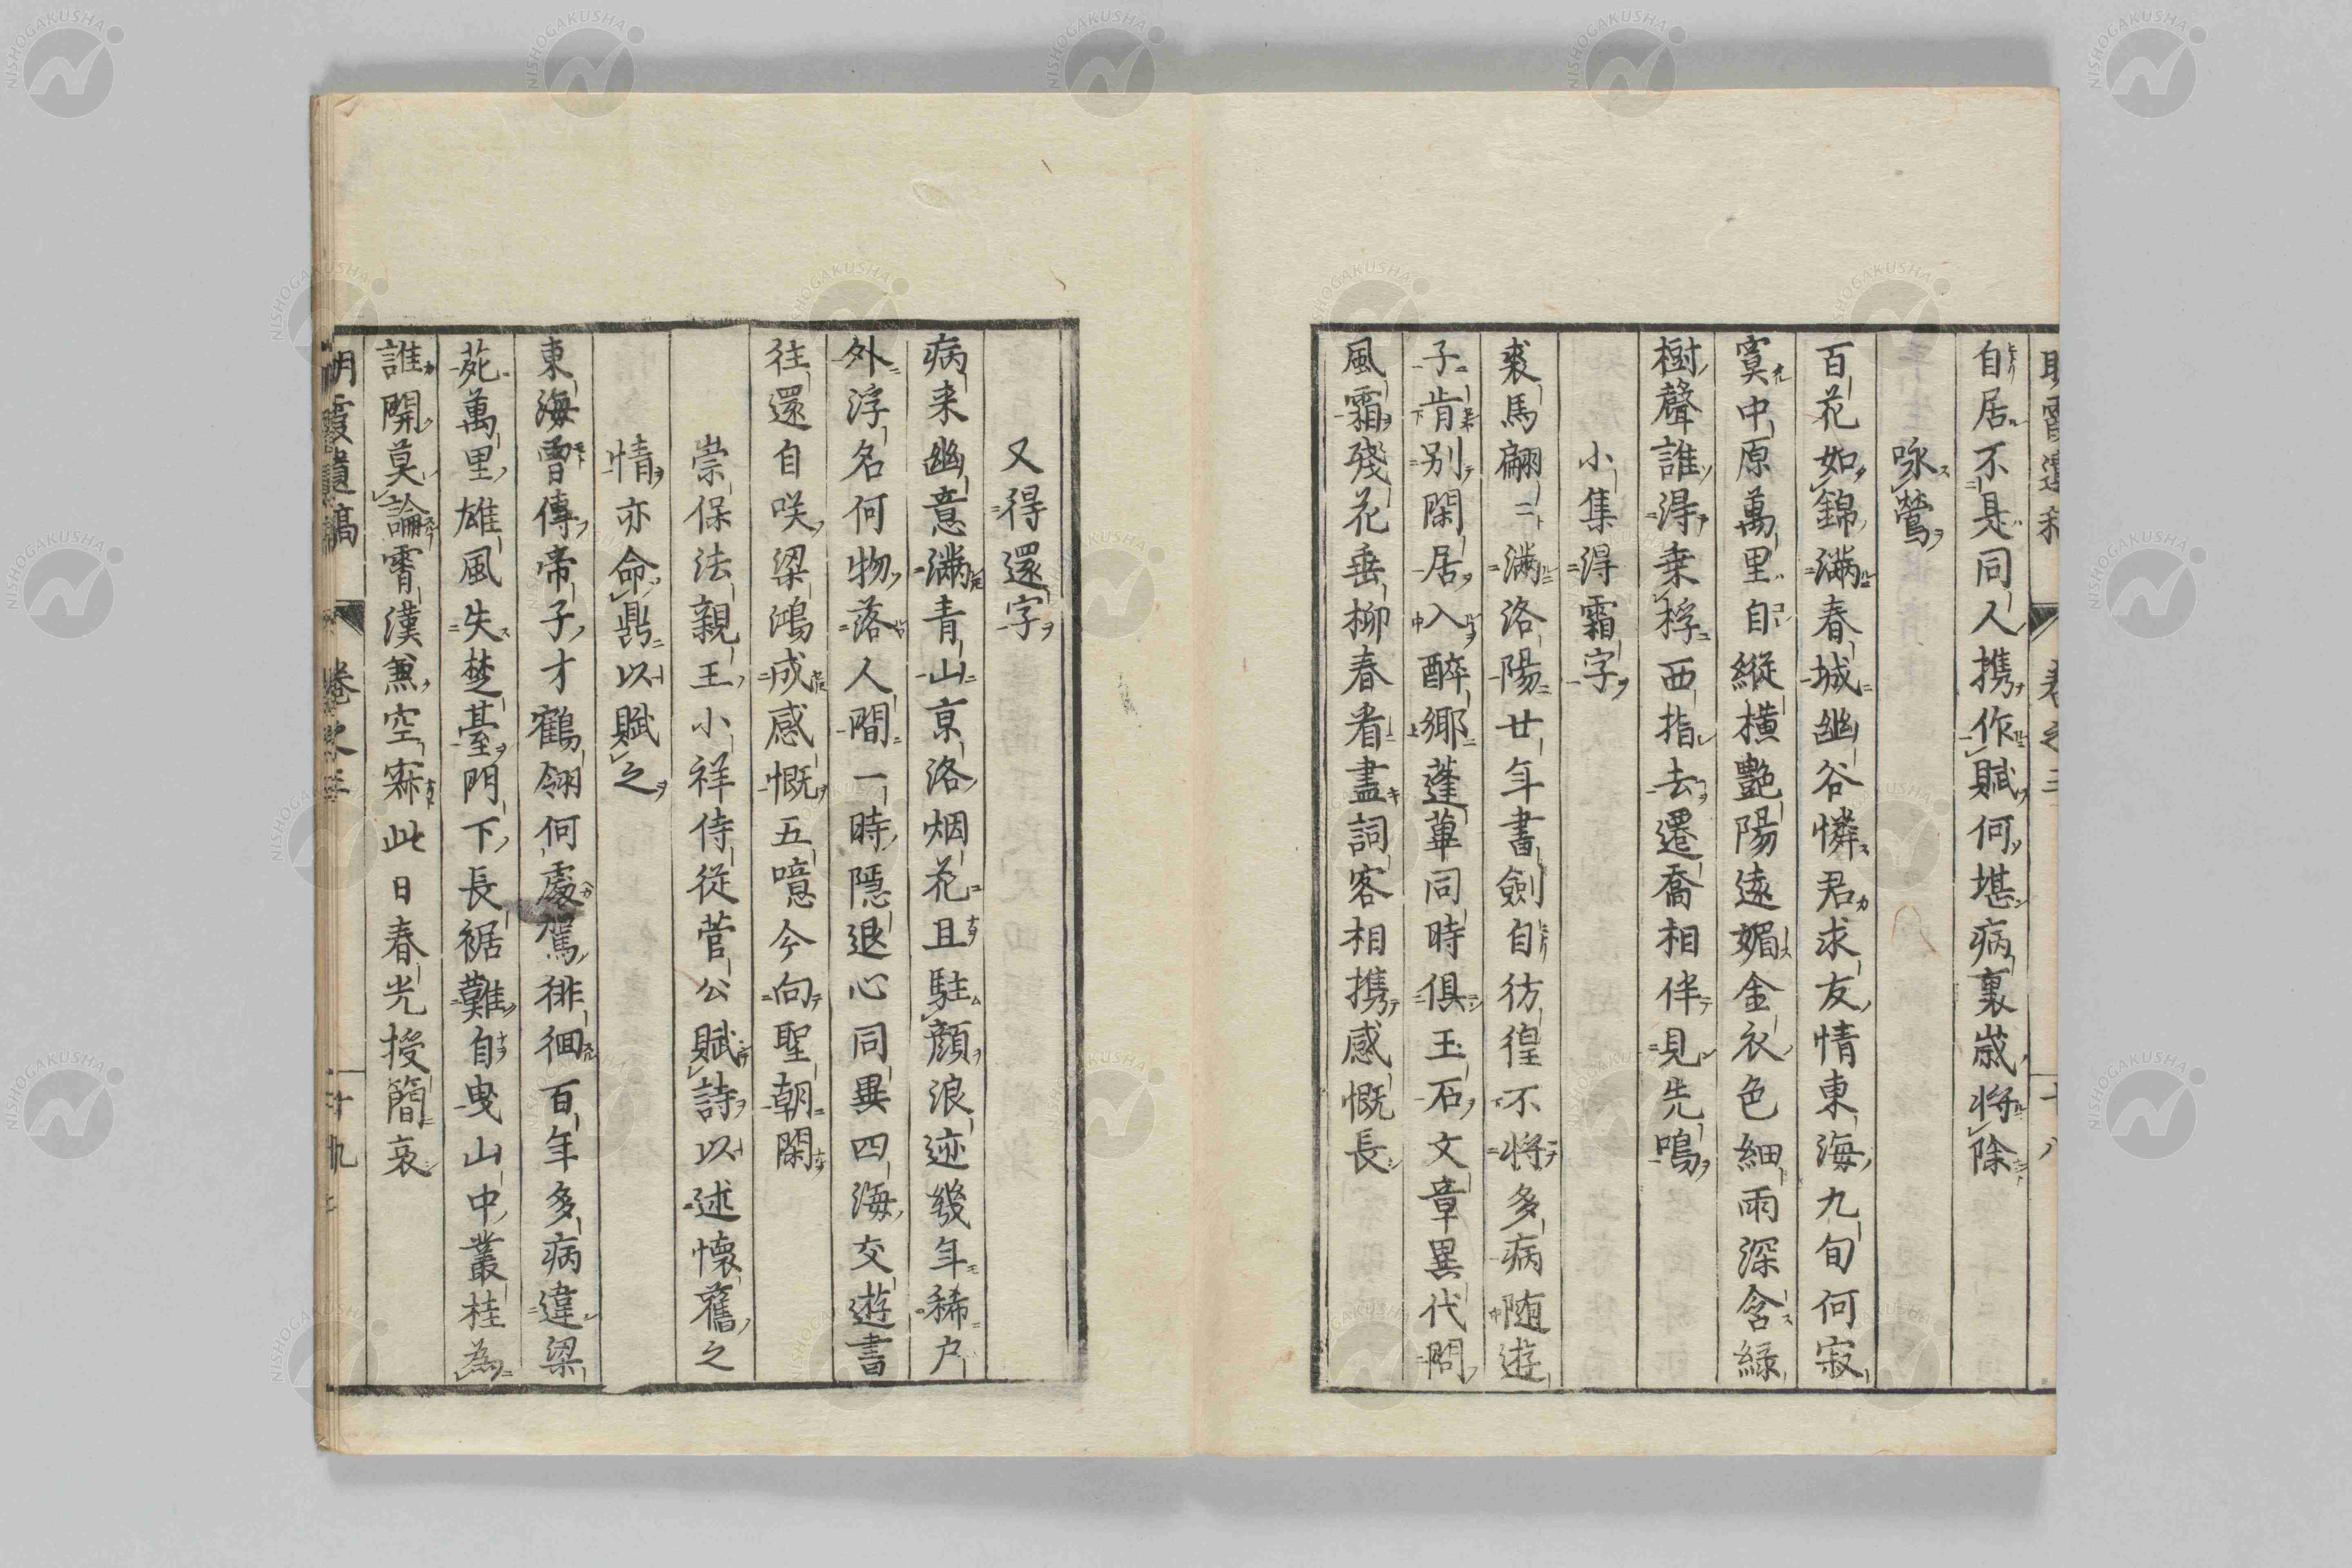 自居不是同人携作賦何堪病裏歳将除
咏鶯
百花如錦滿春城幽谷憐君求友情東海九旬何寂
寞中原萬里自縱横艶陽遠媚金衣色細雨深含緑
樹聲誰得乗桴西指去遷喬相伴見先鳴
小集得霜字
裘馬翩〻滿洛陽廿年書劍自彷徨不将多病随遊
子肯別閑居入醉郷蓬蓽同時俱玉石文章異代問
風霜殘花垂柳春看盡詞客相携感慨長
又得還字
病来幽意滿青山京洛烟花且駐顔浪迹幾年稀户
外浮名何物落人間一時隱退心同異四海交遊書
往還自咲梁鴻成感慨五噫今向聖朝閑
崇保法親王小祥侍従菅公賦詩以述懐舊之
情亦命鼎以賦之
東海曾傳帝子才鶴翎何處駕徘徊百年多病違梁
苑萬里雄風失楚臺門下長裾難自曳山中叢桂為
誰開莫論霄漢兼空寂此日春光授簡哀
明霞遺稿 卷之三 二十九
NISHOGAKUSHA